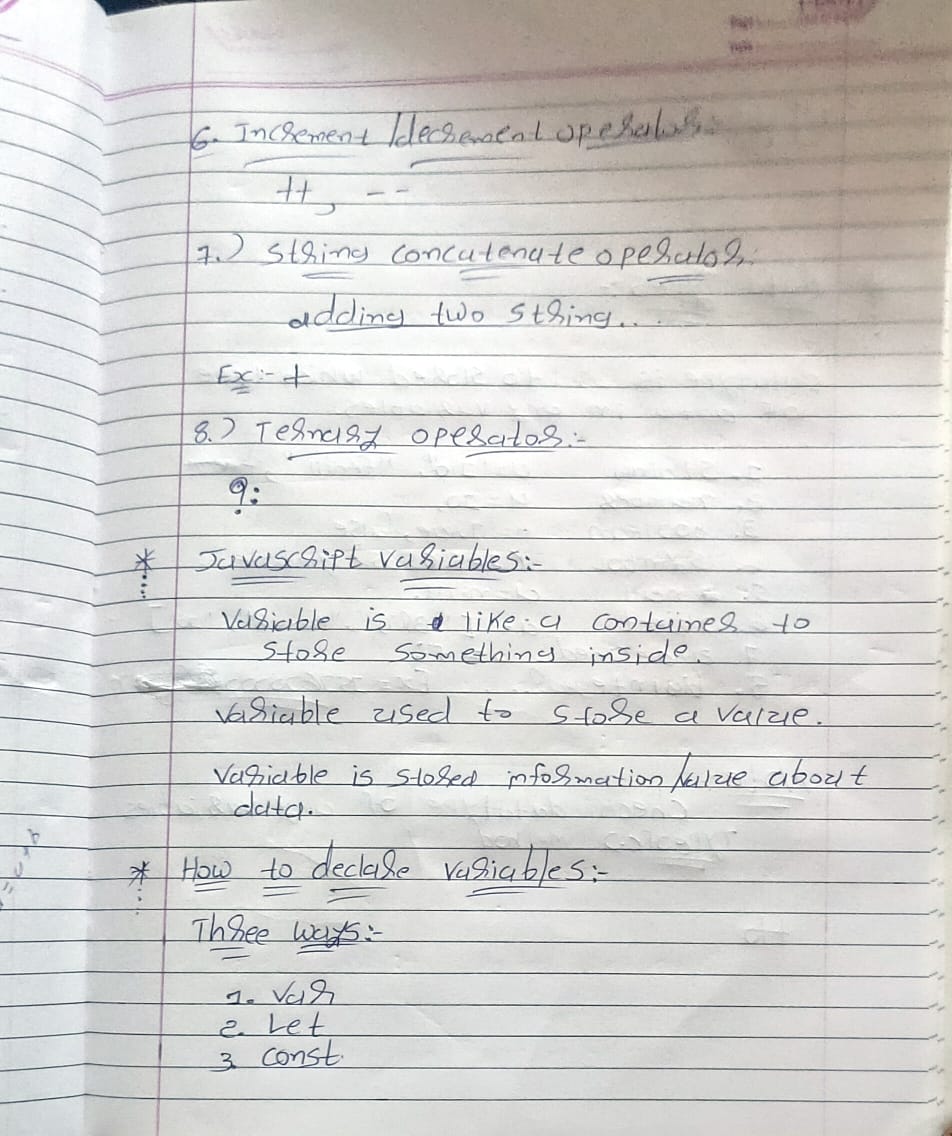 6. Increment/decrement operator:
++, --
7.) String concatenate operator:
adding two string...
Ex:- +
8.) Ternary operator:-
?:
* Javascript variables:-
Variable is like a container to
store something inside.
Variable used to store a value.
Variable is stored information/value about
data.
* How to declare variables:-
Three ways:-
1. Var
2. Let
3. const.